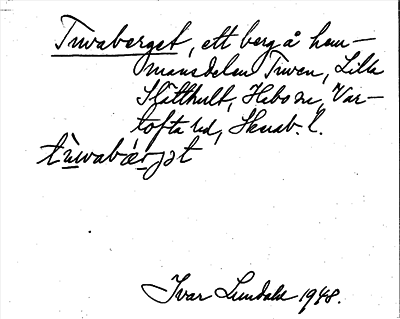 Tuvaberget, ett berg å hem-
mansdelen Tuven, Lilla
Slätthult, Habo sn, Var-
tofta hd, Skarab. l.
Ivar Lundahl 1948.